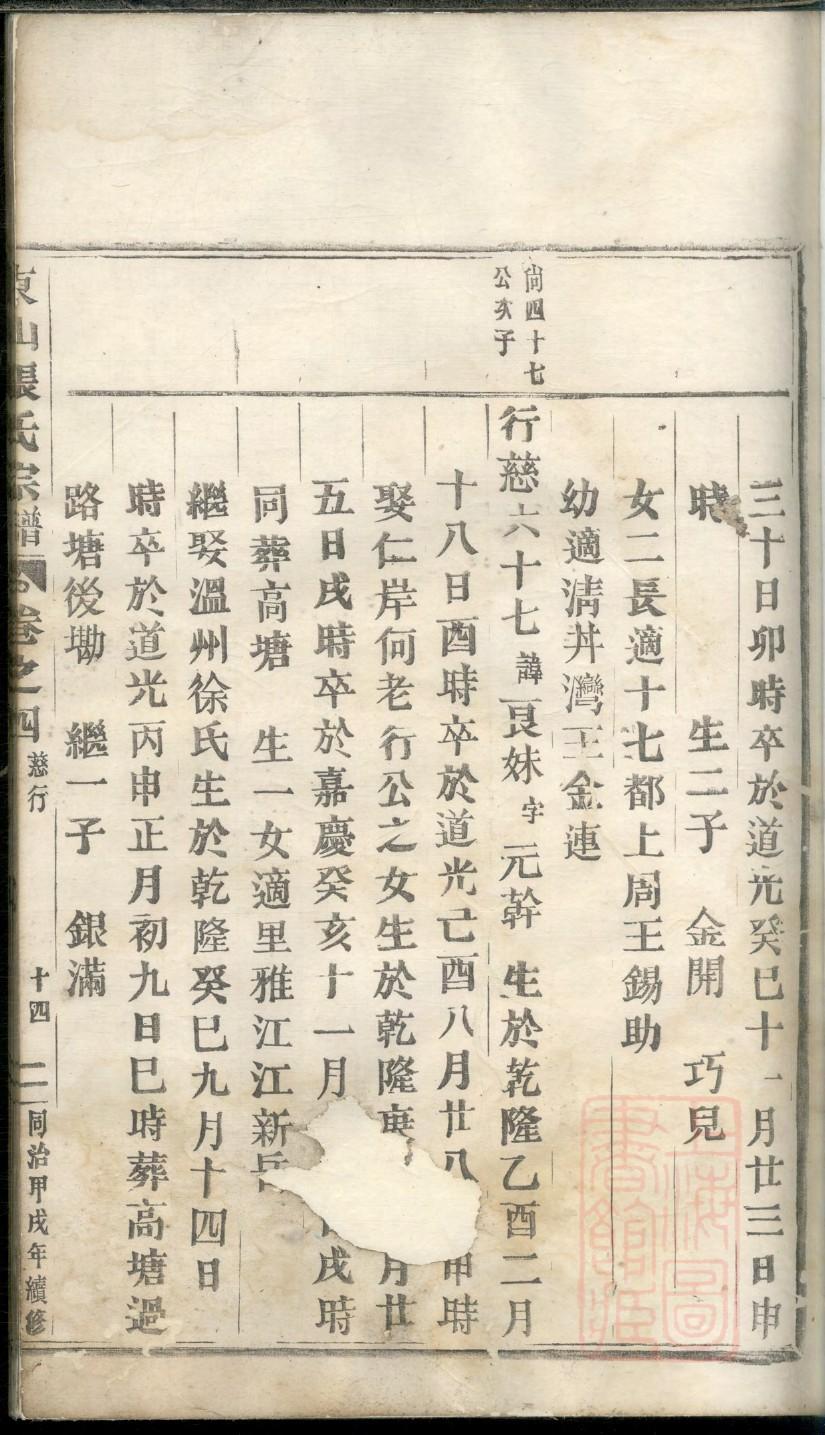 三十日卯時卒於道光癸巳十一月廿三日申
時 生二子 金開 巧兒
女二長適十七都上周王錫助
幼適淸井灣王金連
尙四十七
公次子
行慈六十七 諱 良妹 字 元幹 生於乾隆乙酉二月
十八日酉時卒於道光己酉八月廿八 申時
娶仁岸何老行公之女生於乾隆 月廿
五日戌時卒於嘉慶癸亥十一月 戌時
同葬高塘 生一女適里雅江江新
繼娶溫州徐氏生於乾隆癸巳九月十四日
時卒於道光丙申正月初九日巳時葬高塘過
路塘後墈 繼一子 銀滿
東山張氏宗譜 卷之四 慈行 十四 同治甲戌年續修
上海圖
書館藏